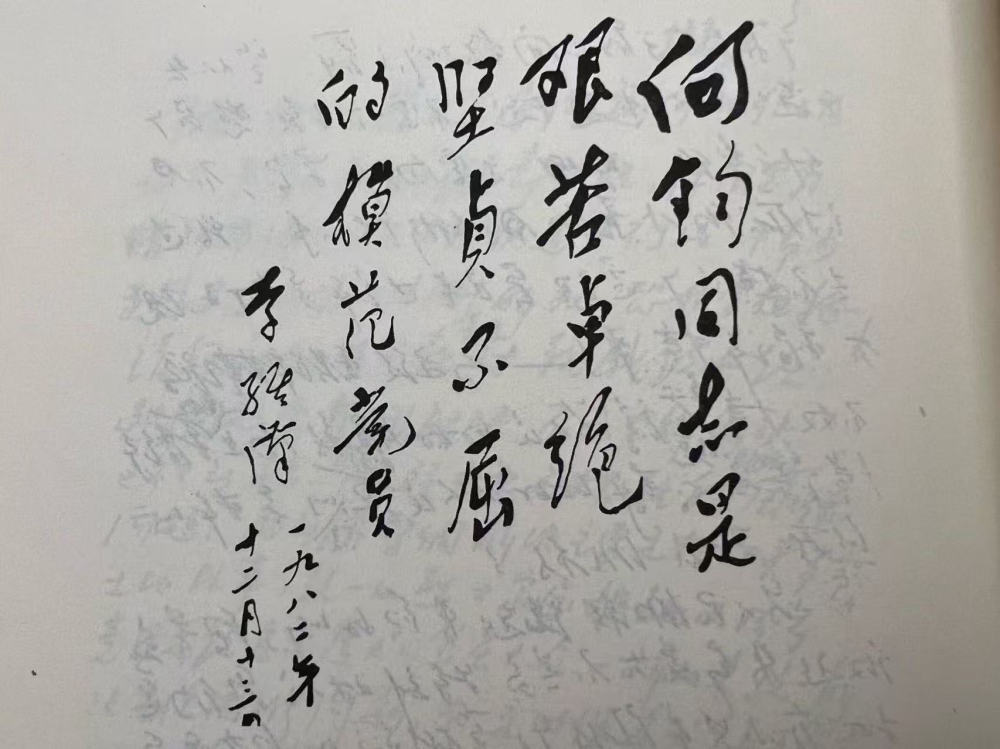 何钧同志是
艰苦卓绝
坚贞不屈
的模范党员
李维汉
一九八二年
十二月十三日